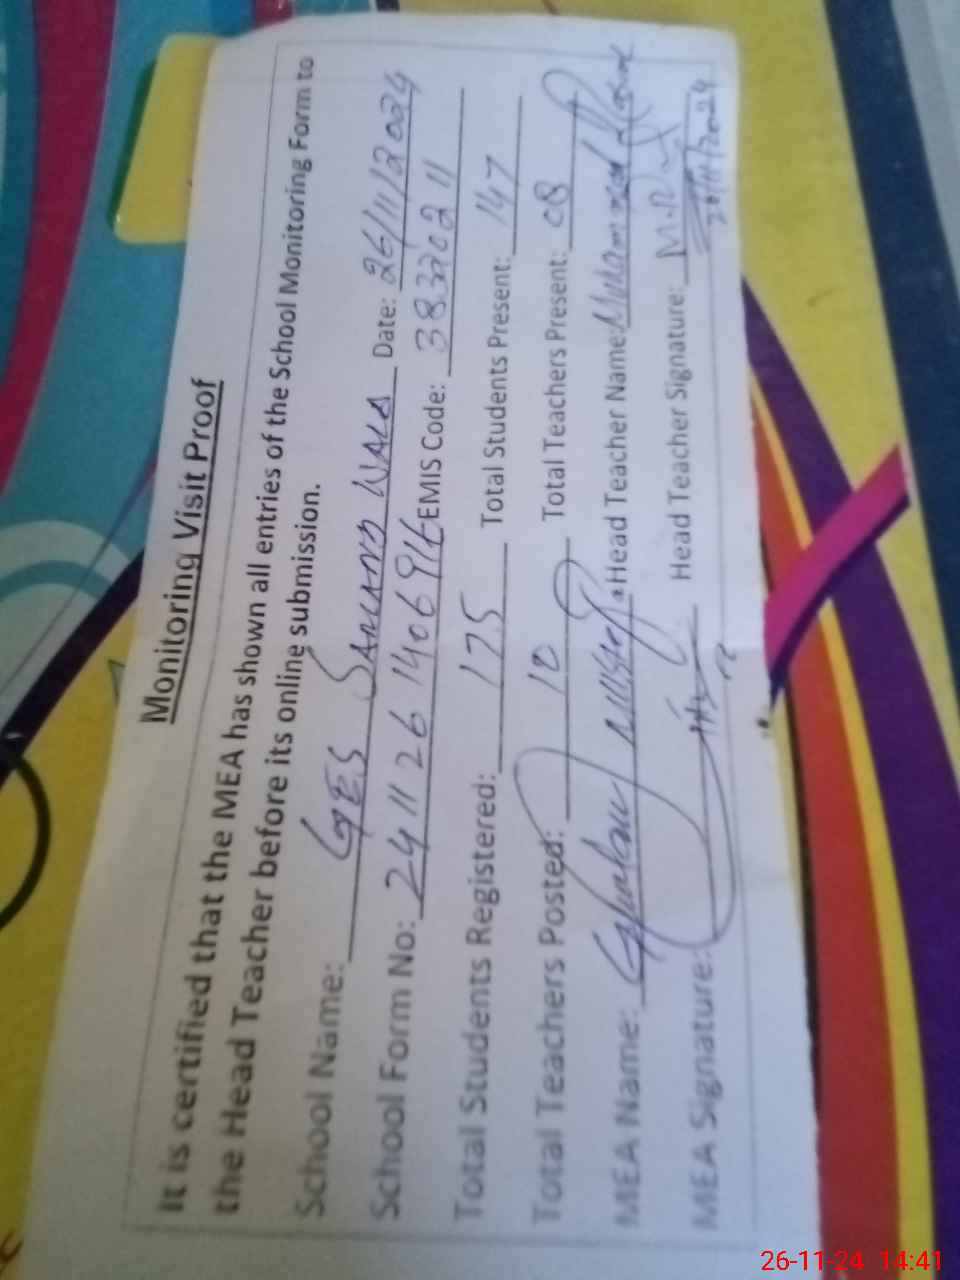 Monitoring Visit Proof
It is certified that the MEA has shown all entries of the School Monitoring Form to
the Head Teacher before its online submission.
School Name: GES Date: 26/11/2024
School Form No: 241126140691 EMIS Code: 38320211
Total Students Registered: 175 Total Students Present: 147
Total Teachers Posted: 10 Total Teachers Present: 08
MEA Name: Ghulam Head Teacher Name: Muhammad
MEA Signature: Head Teacher Signature:
26/11/2024
26-11-24 14:41